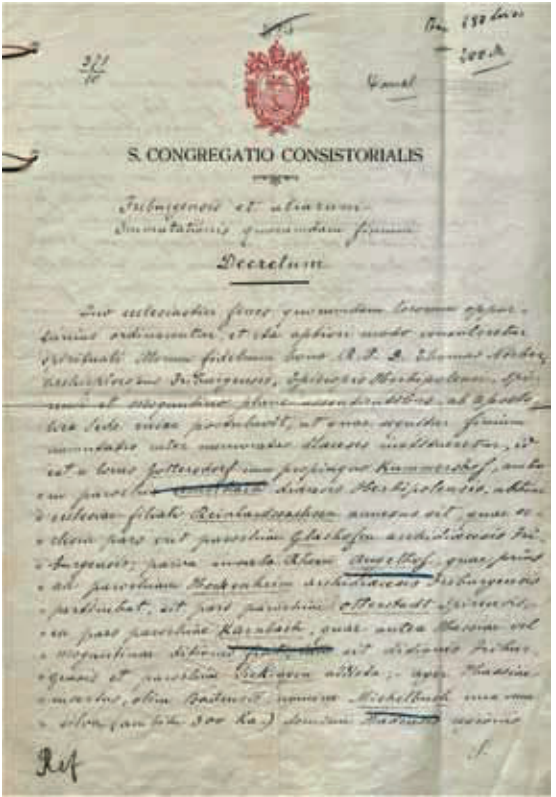 371
10
680 lire
200 M
S. CONGREGATIO CONSISTORIALIS
Friburgensis et aliarum
Immutationis quorumdam finium
Decretum
Quo ecclesiastici fines quorumdam locorum oppor-
tunius ordinarentur, et ita aptiori modo consuleretur
spirituali illorum fidelium bono R. P. D. Thomas
archiepiscopus Friburgensis, Episcopis Herbipolensi, Spi-
rensi et Moguntino plane assentientibus, ab Aposto-
lica Sede postulavit, ut quae sequitur finium
mutatio inter memoratas dioeceses institueretur, id
est: locus Gottersdorf una propinquo Kummershof, antea
in parochia dioecesis Herbipolensis,
ecclesiae filiali Reinhardsachsen annexus sit, quae ec-
clesia pars erit parochiae Glashofen archidioecesis Fri-
burgensis; parva insula Rheni Angelhof, quae prius
ad parochiam Hockenheim archidioecesis Friburgensis
pertinebat, sit pars parochiae Otterstadt Spirensis,
ea pars parochiae Karnbach, quae antea Hassiae vel
moguntinae ditionis sit ditionis Fribur-
gensis et parochiae Sickingen addita; ager Hassiae
insertus, olim nomine Michelbuch una cum
silva (ambitu 300 Ha.) regionis
Ref